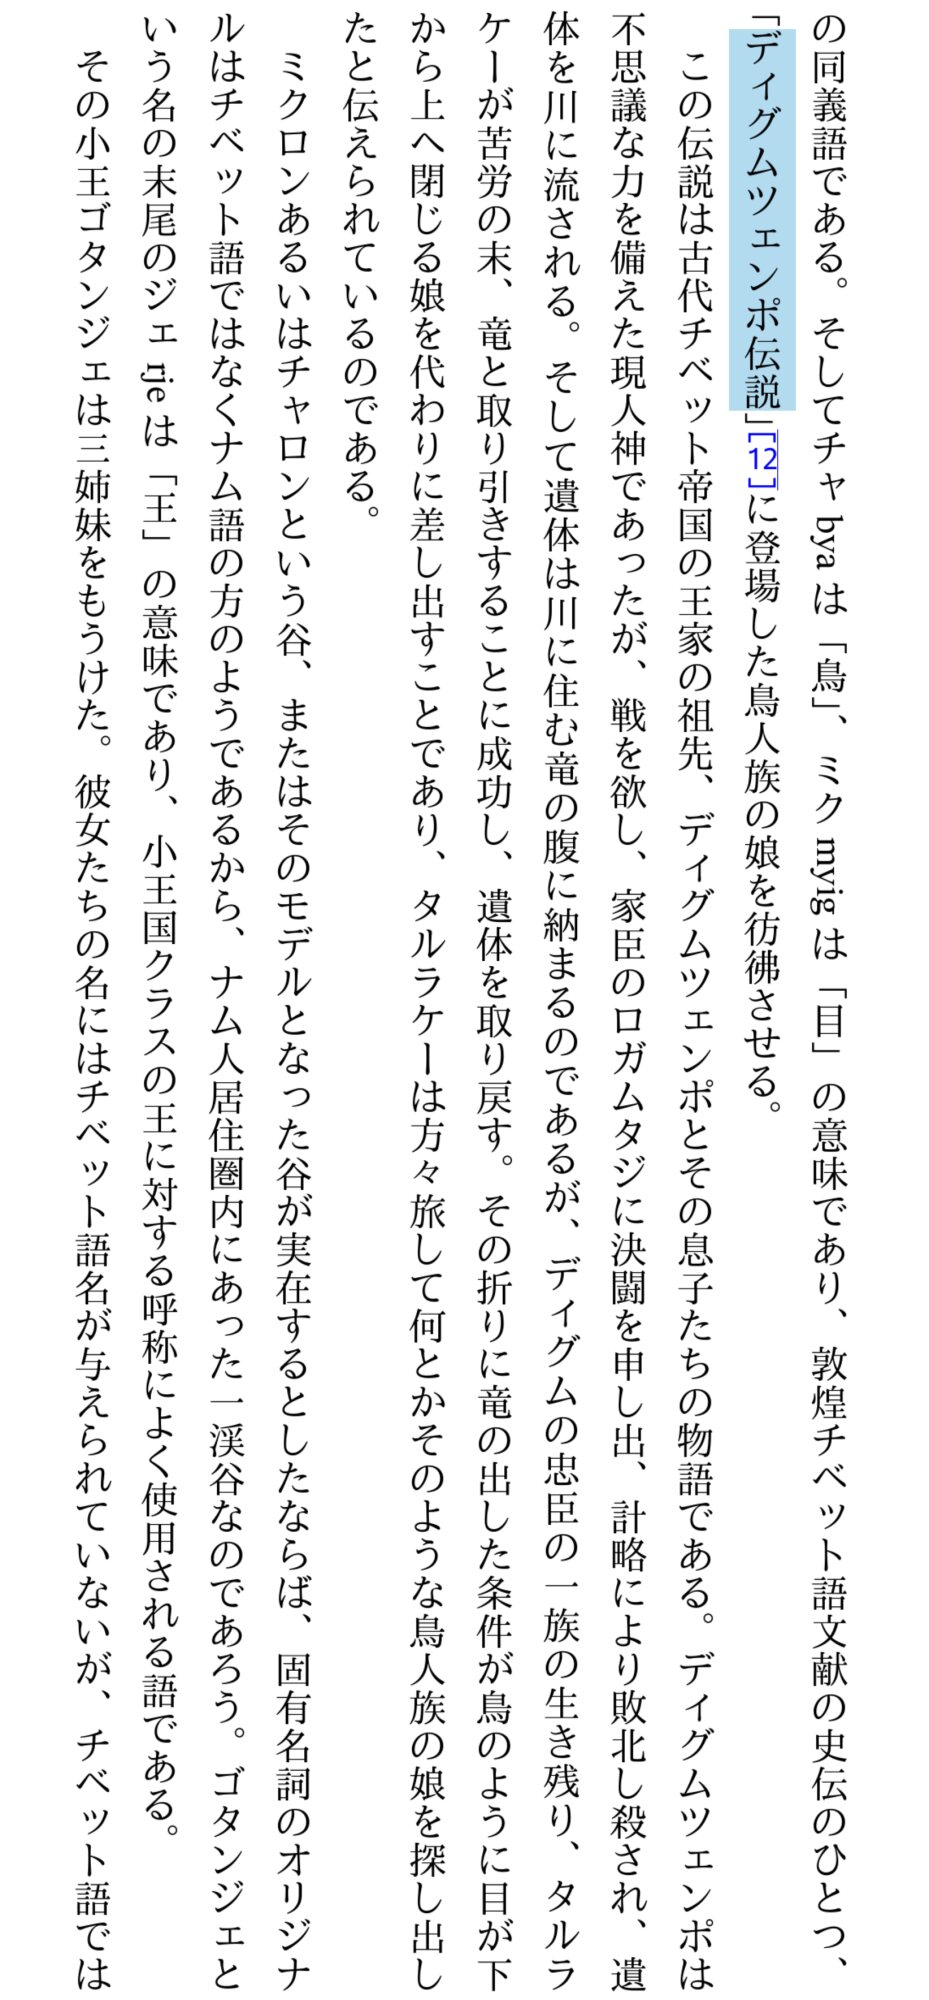 の同義語である。そしてチャ bya は「鳥」、ミク myig は「目」の意味であり、敦煌チベット語文献の史伝のひとつ、
「ディグムツェンポ伝説」[12]に登場した鳥人族の娘を彷彿させる。
この伝説は古代チベット帝国の王家の祖先、ディグムツェンポとその息子たちの物語である。ディグムツェンポは
不思議な力を備えた現人神であったが、戦を欲し、家臣のロガムタジに決闘を申し出、計略により敗北し殺され、遺
体を川に流される。そして遺体は川に住む竜の腹に納まるのであるが、ディグムの忠臣の一族の生き残り、タルラ
ケーが苦労の末、竜と取り引きすることに成功し、遺体を取り戻す。その折りに竜の出した条件が鳥のように目が下
から上へ閉じる娘を代わりに差し出すことであり、タルラケーは方々旅して何とかそのような鳥人族の娘を探し出し
たと伝えられているのである。
ミクロンあるいはチャロンという谷、またはそのモデルとなった谷が実在するとしたならば、固有名詞のオリジナ
ルはチベット語ではなくナム語の方のようであるから、ナム人居住圏内にあった一渓谷なのであろう。ゴタンジェと
いう名の末尾のジェ rje は「王」の意味であり、小王国クラスの王に対する呼称によく使用される語である。
その小王ゴタンジェは三姉妹をもうけた。彼女たちの名にはチベット語名が与えられていないが、チベット語では